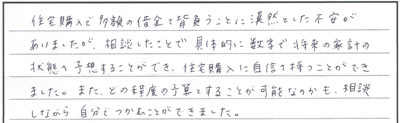 住宅購入で多額の借金を背負うことに漠然とした不安が
ありましたが、相談したことで具体的に数字で将来の家計の
状態を予想することができ、住宅購入に自信を持つことができ
ました。また、どの程度の予算とすることが可能なのかも、相談
しながら自分でつかむことができました。